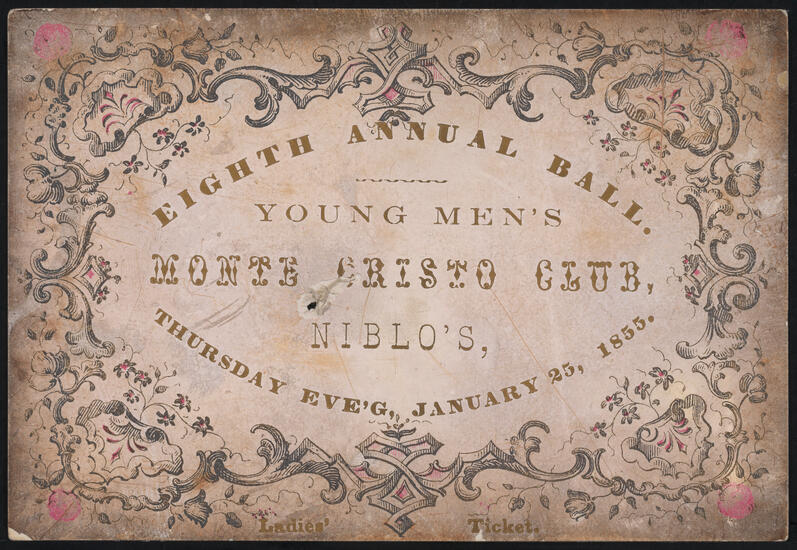 EIGHTH ANNUAL BALL.
YOUNG MEN'S
MONTE CRISTO CLUB,
NIBLO'S,
THURSDAY EVE'G, JANUARY 25, 1855.
Ladies' Ticket.